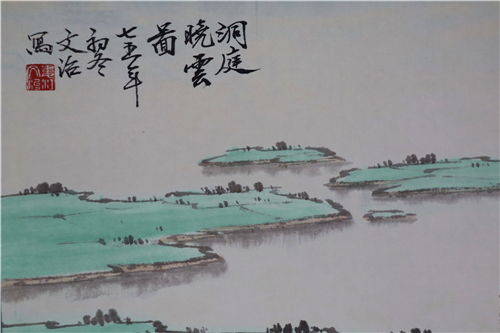 洞庭
晓雲
啚
七五年
初冬
文治
寫